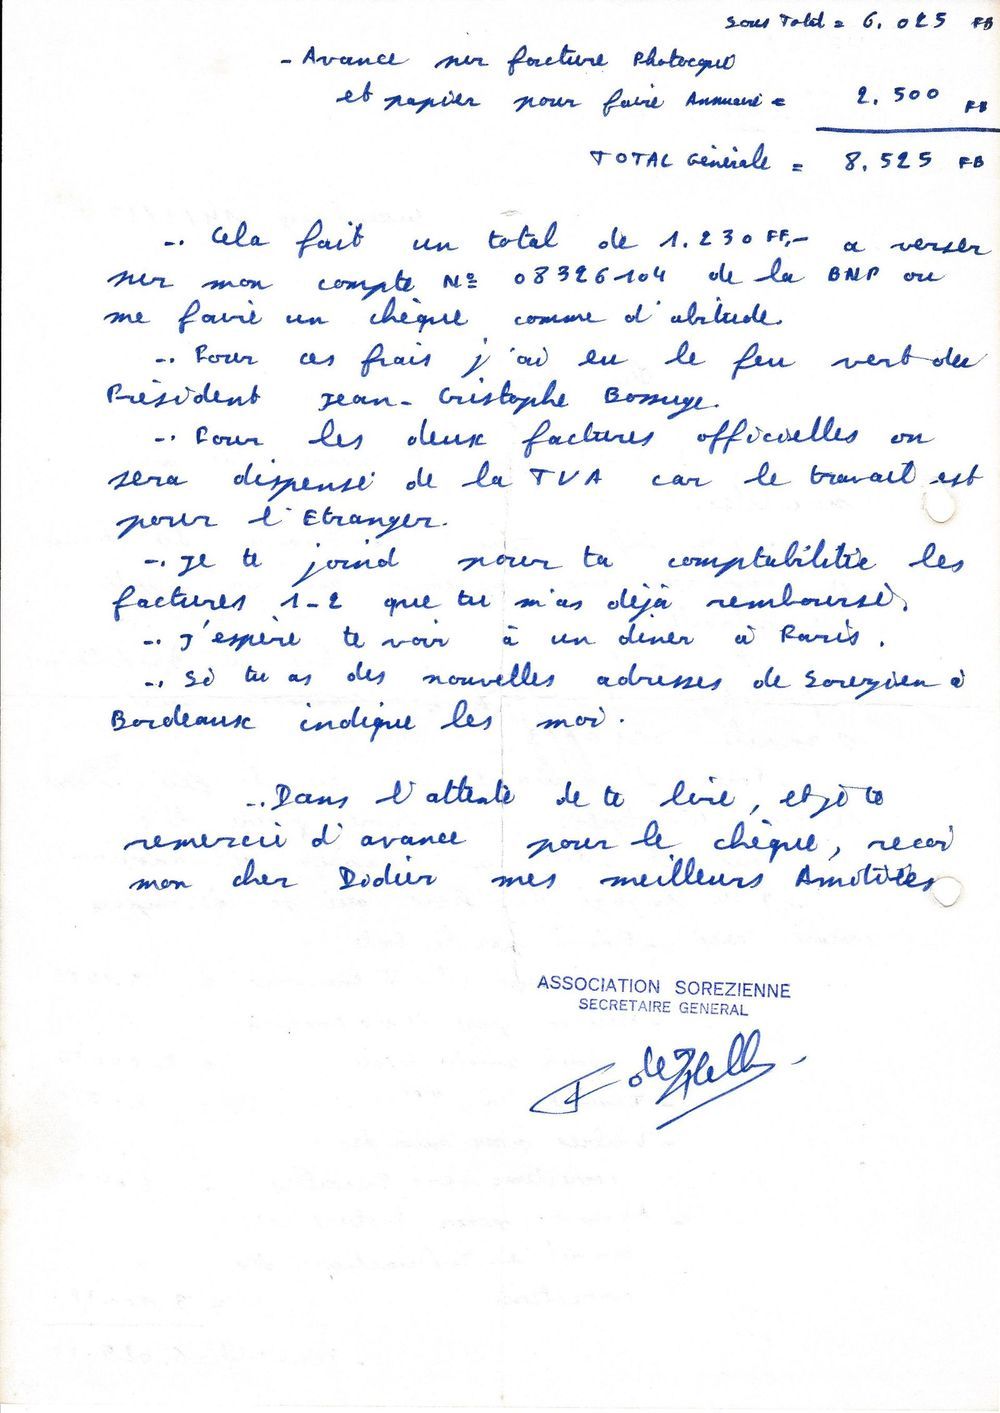 Sous Total = 6.025 FB
- Avance sur facture Photocopie
et papier pour faire Annuaire = 2.500 FB
TOTAL Générale = 8.525 FB
-. Cela fait un total de 1.230 FF,- a verser
sur mon compte Nº 08326104 de la BNP ou
me faire un chèque comme d'abitude.
-. Pour ces frais j'ai eu le feu vert du
Président Jean-Cristophe
-. Pour les deux factures officielles on
sera dispensé de la TVA car le travail est
pour l'Etranger.
-. Je te joind pour ta comptabilitie les
factures 1-2 que tu m'as déjà remboursé.
-. J'espère te voir à un diner à Paris.
-. Si tu as des nouvelles adresses de Sorezien à
Bordeaux indique les moi.
-. Dans l'attente de te lire, et je te
remercie d'avance pour le chèque, recoi
mon cher Didier mes meilleurs Amitiées
ASSOCIATION SOREZIENNE
SECRETAIRE GENERAL